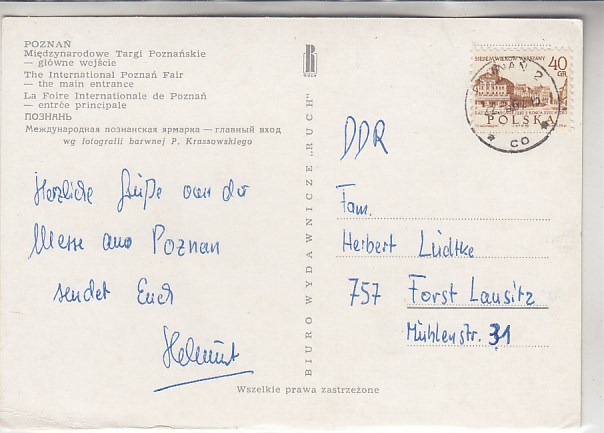 POZNAŃ
Międzynarodowe Targi Poznańskie
— główne wejście
The International Poznań Fair
— the main entrance
La Foire Internationale de Poznań
— entrée principale
ПОЗНАНЬ
Международная познанская ярмарка — главный вход
wg fotografii barwnej P. Krassowskiego
Herzliche Grüße von der
Messe aus Poznan
sendet Euch
Helmut
BIURO WYDAWNICZE „RUCH”
SIEDEM WIEKÓW WARSZAWY
40
GR
POLSKA
POZNAŃ 2
CO
DDR
Fam.
Herbert Lüdtke
757 Forst Lausitz
Mühlenstr. 31
Wszelkie prawa zastrzeżone